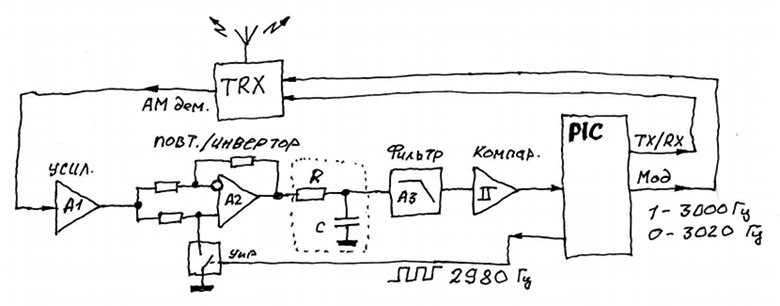 TRX
АМ дем.
повт./инвертор
усил.
A1
A2
R
C
Фильтр
A3
Компар.
PIC
TX/RX
Мод
1 - 3000 Гц
0 - 3020 Гц
Упр
2980 Гц